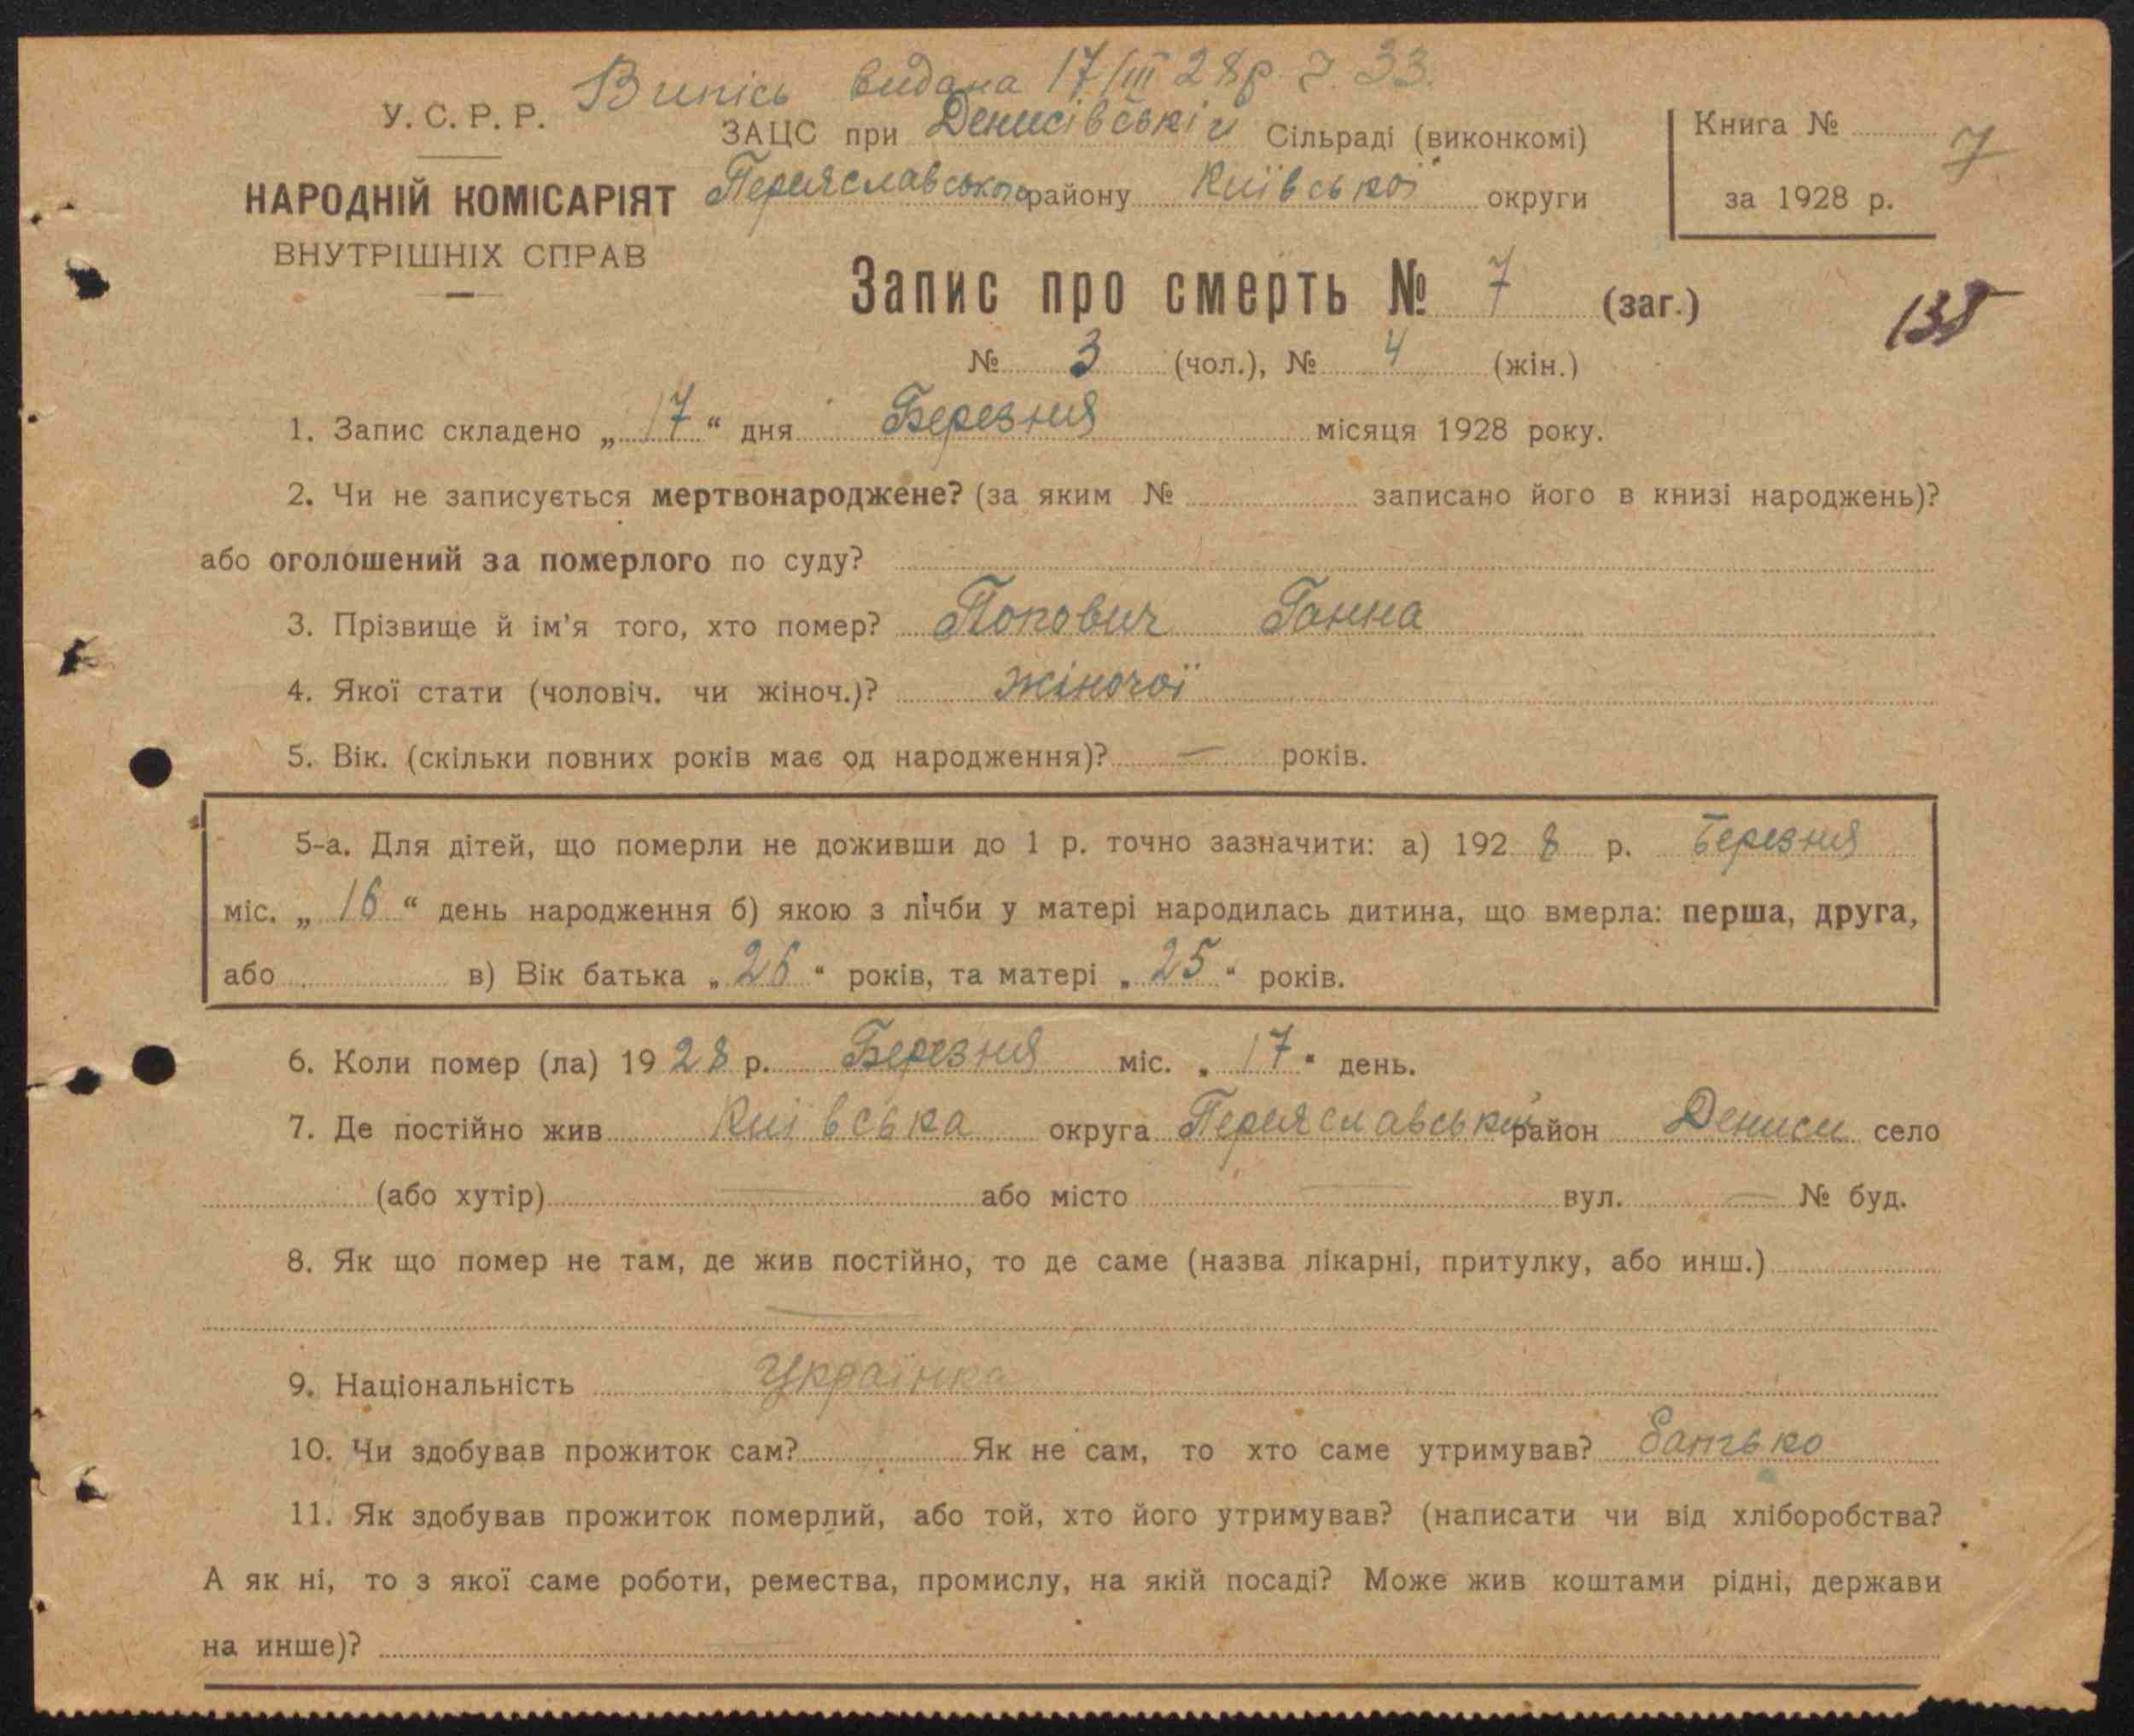 Випісь видана 17/III 28р. 7. 33.
У. С. Р. Р.
ЗАЦС при Денисівській Сільраді (виконкомі)
Книга № 7
НАРОДНІЙ КОМІСАРІЯТ
Переяславського району Київської округи
за 1928 р.
ВНУТРІШНІХ СПРАВ
Запис про смерть № 7 (заг.)
138
№ 3 (чол.), № 4 (жін.)
1. Запис складено „ 17 “ дня Березня місяця 1928 року.
2. Чи не записується мертвонароджене? (за яким № записано його в книзі народжень)?
або оголошений за померлого по суду?
3. Прізвище й ім'я того, хто помер? Попович Ганна
4. Якої стати (чоловіч. чи жіноч.)? жіночої
5. Вік. (скільки повних років має од народження)? — років.
5-а. Для дітей, що померли не доживши до 1 р. точно зазначити: а) 192 8 р. Березня
міс. „ 16 “ день народження б) якою з лічби у матері народилась дитина, що вмерла: перша, друга,
або в) Вік батька „ 26 “ років, та матері „ 25 “ років.
6. Коли помер (ла) 19 28 р. Березня міс. „ 17 “ день.
7. Де постійно жив Київська округа Переяславський район Дениси село
(або хутір) — або місто — вул. — № буд.
8. Як що помер не там, де жив постійно, то де саме (назва лікарні, притулку, або инш.)
—
9. Національність Українка
10. Чи здобував прожиток сам? Як не сам, то хто саме утримував? Батько
11. Як здобував прожиток померлий, або той, хто його утримував? (написати чи від хліборобства?
А як ні, то з якої саме роботи, ремества, промислу, на якій посаді? Може жив коштами рідні, держави
на инше)?